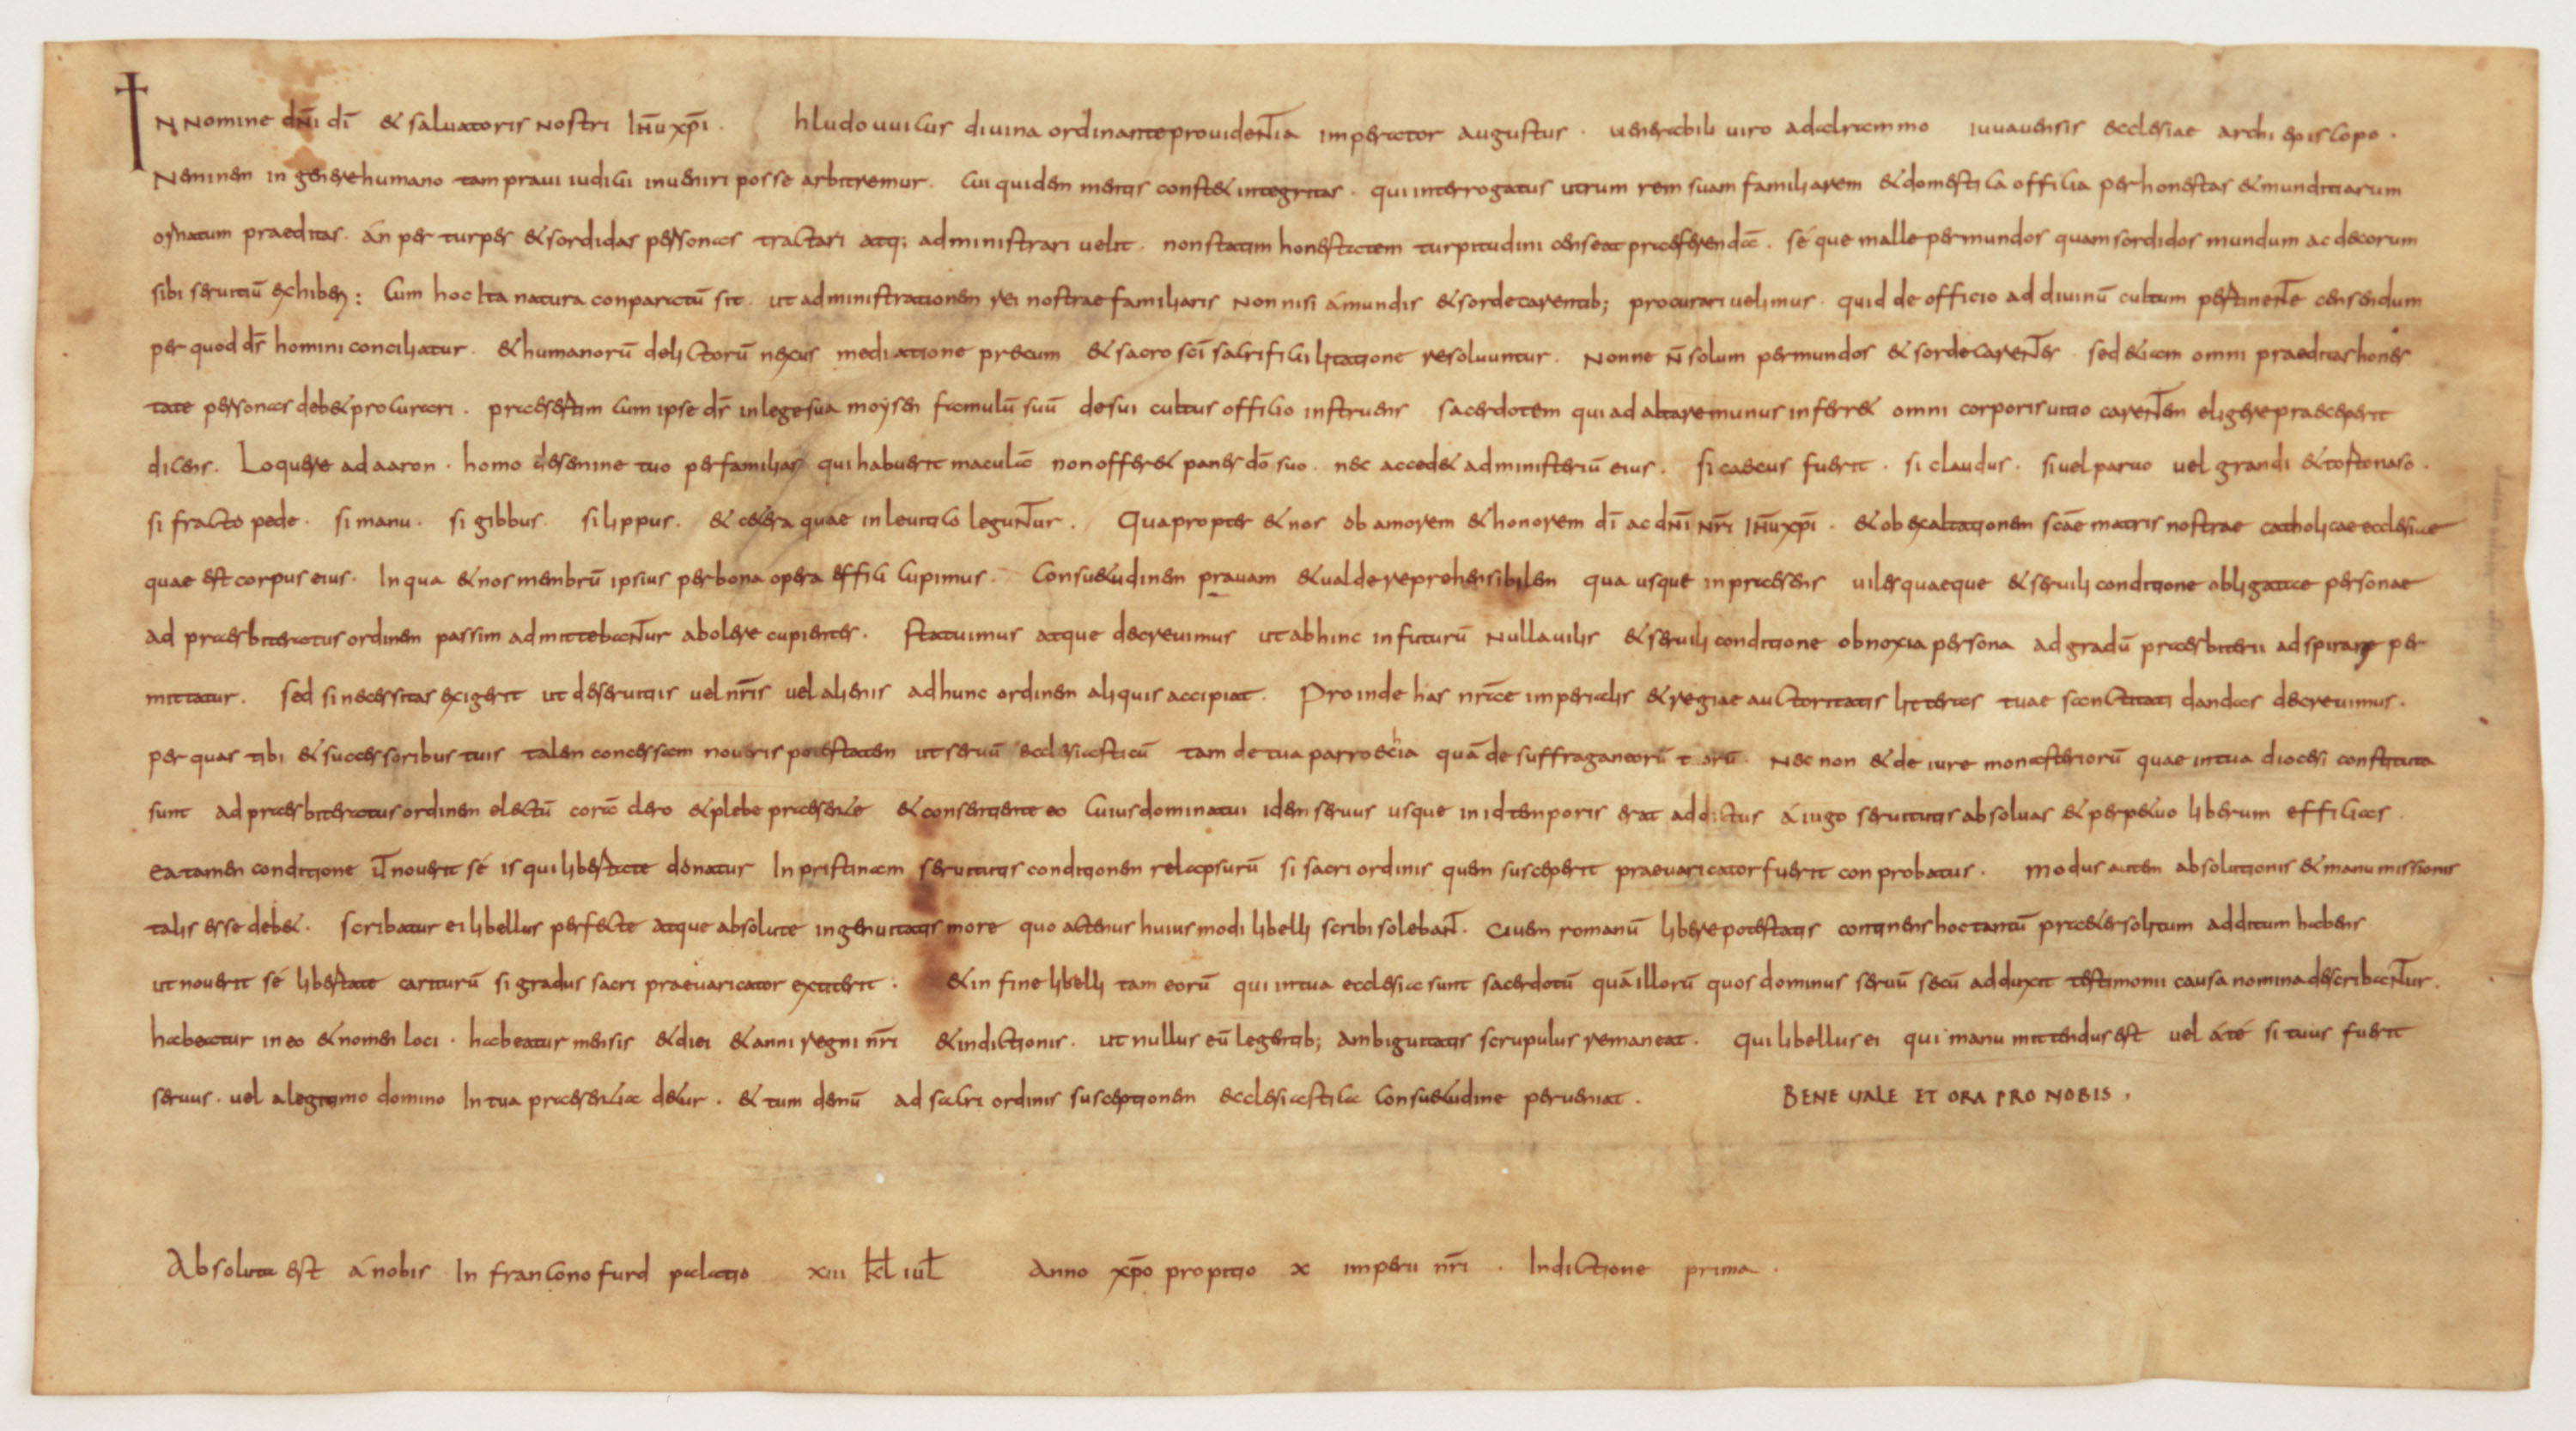 IN Nomine dn̄i dī & saluatoris nostri ihūxpī. hludouuicus diuina ordinante prouidentia imperator augustus. uenerabili uiro adalrammo iuuauensis ecclesiae archiepiscopo.
Neminem in genere humano tam praui iudicii inueniri posse arbitremur. Cui quidem mentis const& integritas. qui interrogatus utrum rem suam familiarem & domestica officia per honestas & munditiarum
ornatum praeditas. án per turpes & sordidas personas tractari atq; administrari uelit. non statim honestatem turpitudini censeat praeferendā. sé que malle per mundos quam sordidos mundum ac decorum
sibi seruitiū exhiberi: Cum hoc ita natura conparatū sit. ut administrationem rei nostrae familiaris non nisi á mundis & sorde carentib; procurari uelimus. quid de officio ad diuinū cultum pertinente censendum
per quod dr̄ homini conciliatur. & humanorū delictorū nexus mediatione precum & sacro scī sacrificii litatione resoluuntur. Nonne n̄ solum per mundos & sorde carentes. sed &iam omni praeditas hones
tate personas deb& procurari. praesertim cum ipse dr̄ in lege sua moysen famulū suū de sui cultus officio instruens sacerdotem qui ad altare munus inferr& omni corporis uitio carentem eligere praeceperit
dicens. Loquere ad aaron. homo de semine tuo per familias qui habuerit maculā non offer& panes dō suo. nec acced& ad ministeriū eius. si caecus fuerit. si claudus. si uel paruo uel grandi & torto naso.
si fracto pede. si manu. si gibbus. si lippus. & c&era quae in leuitico leguntur. Quapropter & nos ob amorem & honorem dī ac dn̄i nr̄i ihūxpī. & ob exaltationem scāe matris nostrae catholicae ecclesiae
quae est corpus eius. In qua & nos membrū ipsius per bona opera effici cupimus. Consu&udinem prauam & ualde reprehensibilem qua usque in praesens uiles quaeque & seruili conditione obligatae personae
ad praesbiteratus ordinem passim admittebantur abolere cupientes. statuimus atque decreuimus ut abhinc in futurū nulla uilis & seruili conditione obnoxia persona ad gradū praesbiterii adspirare per
mittatur. sed si necessitas exigerit ut de seruitiis uel nr̄is uel alienis ad hunc ordinem aliquis accipiat. Proinde has nr̄ae imperialis & regiae auctoritatis litteras tuae sanctitati dandas decreuimus.
per quas tibi & successoribus tuis talem concessam noueris potestatem ut seruū ecclesiasticū tam de tua parroechia quā de suffraganeorū t orū. Nec non & de iure monasteriorū quae in tua diocesi constituta
sunt ad praesbiteratus ordinem electū corā clero & plebe praesente & consentiente eo cuius dominatui idem seruus usque in id temporis erat addictus á iugo seruitutis absoluas & perp&uo liberum efficias.
Ea tamen conditione ut nouerit sé is qui libertate donatur In pristinam seruitutis conditionem relapsurū si sacri ordinis quem susceperit praeuaricator fuerit conprobatus. Modus autem absolutionis & manumissionis
talis esse deb&. scribatur ei libellus perfecte atque absolute ingenuitatis more quo actenus huiusmodi libelli scribi solebant. Ciuem romanū libere potestatis continens hoc tantū praeter solitum additum habens
ut nouerit sé libertate cariturū si gradus sacri praeuaricator extiterit: & in fine libelli tam eorū qui in tua ecclesia sunt sacerdotū quā illorū quos dominus seruū secū adduxit testimonii causa nomina describantur.
habeatur in eo & nomen loci. habeatur mensis & diei & anni regni nr̄i & indictionis. ut nullus eū legentib; ambiguitatis scrupulus remaneat. Qui libellus ei qui manu mittendus est uel á té si tuus fuerit
seruus. uel a legitimo domino In tua praesentia d&ur. & tum demū ad sacri ordinis susceptionem ecclesiastica consu&udine perueniat. BENE UALE ET ORA PRO NOBIS.
Absoluta est á nobis In franconofurd palatio xiii kl̄ iul̄ Anno xpō propitio x imperii nr̄i. Indictione prima.